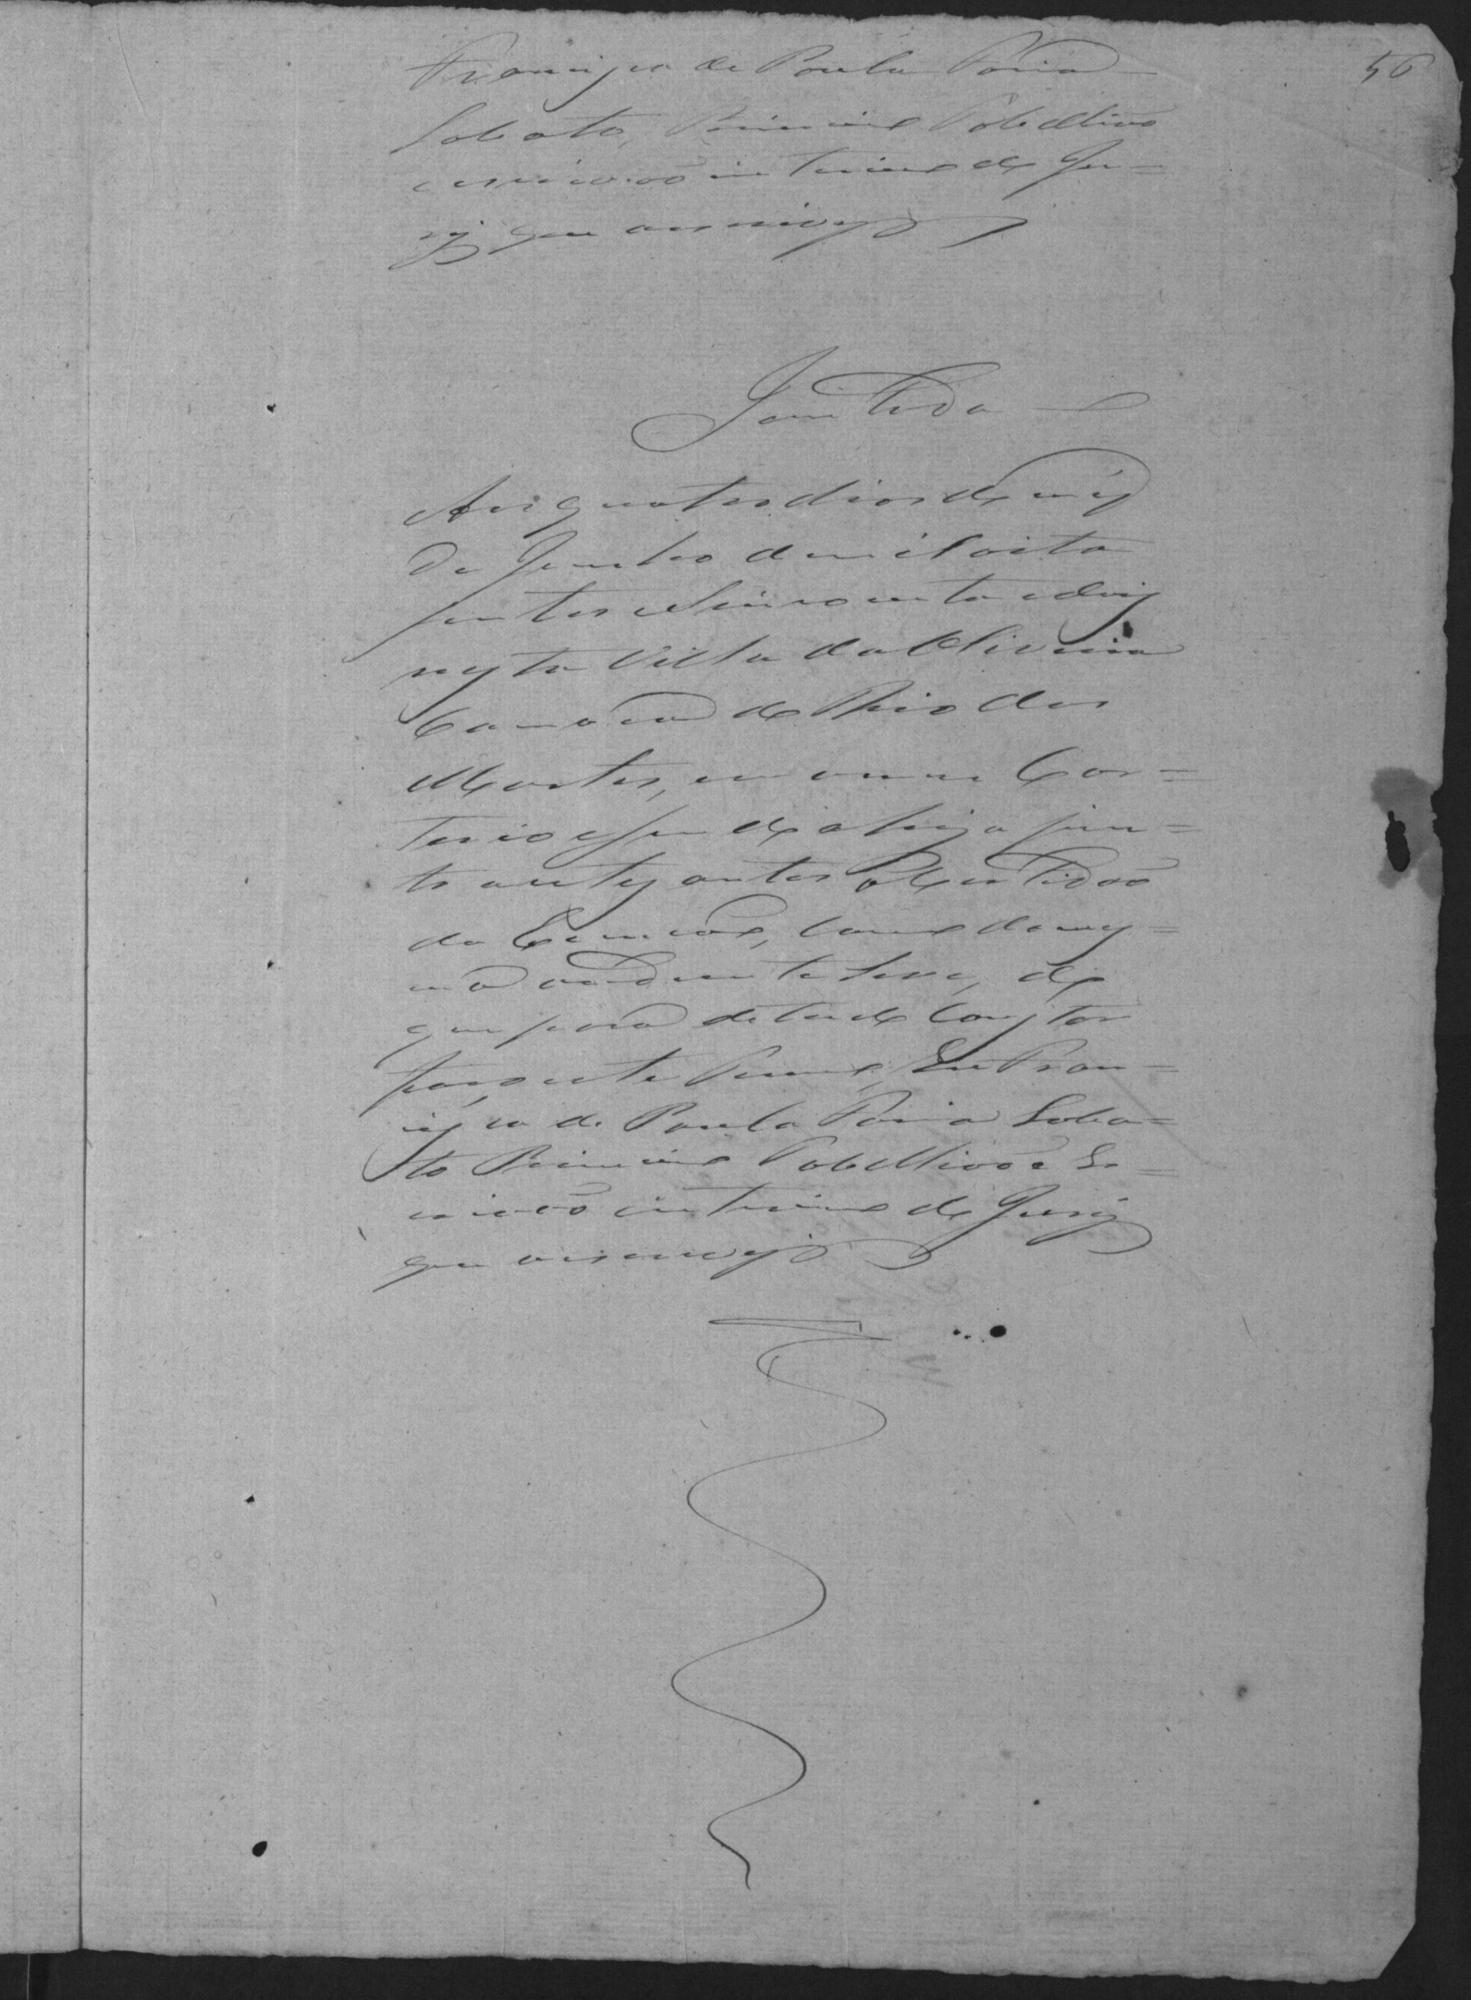 56
Francisco de Paula Faria
Lobato, Primeiro Tabellião
escrivão interino de Ju=
ry que escrevy
Juntada
Aos quatro dias do mes
de Junho de mil oito
sentos e sincoenta e dois
nesta Villa da Oliveira
Comarca do Rio das
Mortes, em o meu Car=
torio e sendo ahi ajun=
to a estes autos a Certidão
que para de tudo Constar
faço este termo, Eu Fran=
cisco de Paula Faria Loba=
to Primeiro Tabellião e Es=
crivão interino de Jury
que escrevy